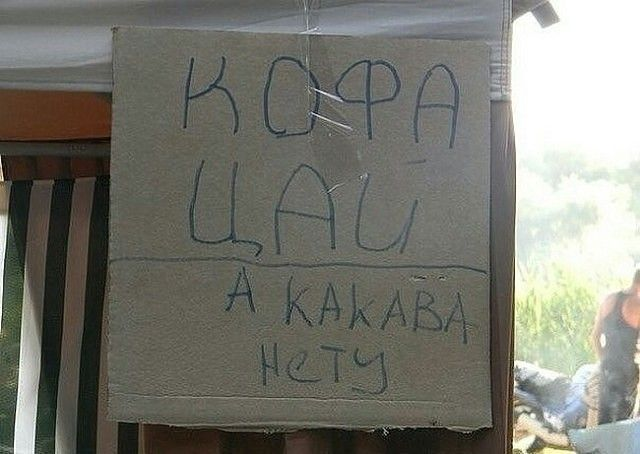 КОФА
ЦАЙ
А КАКАВА
НеТУ